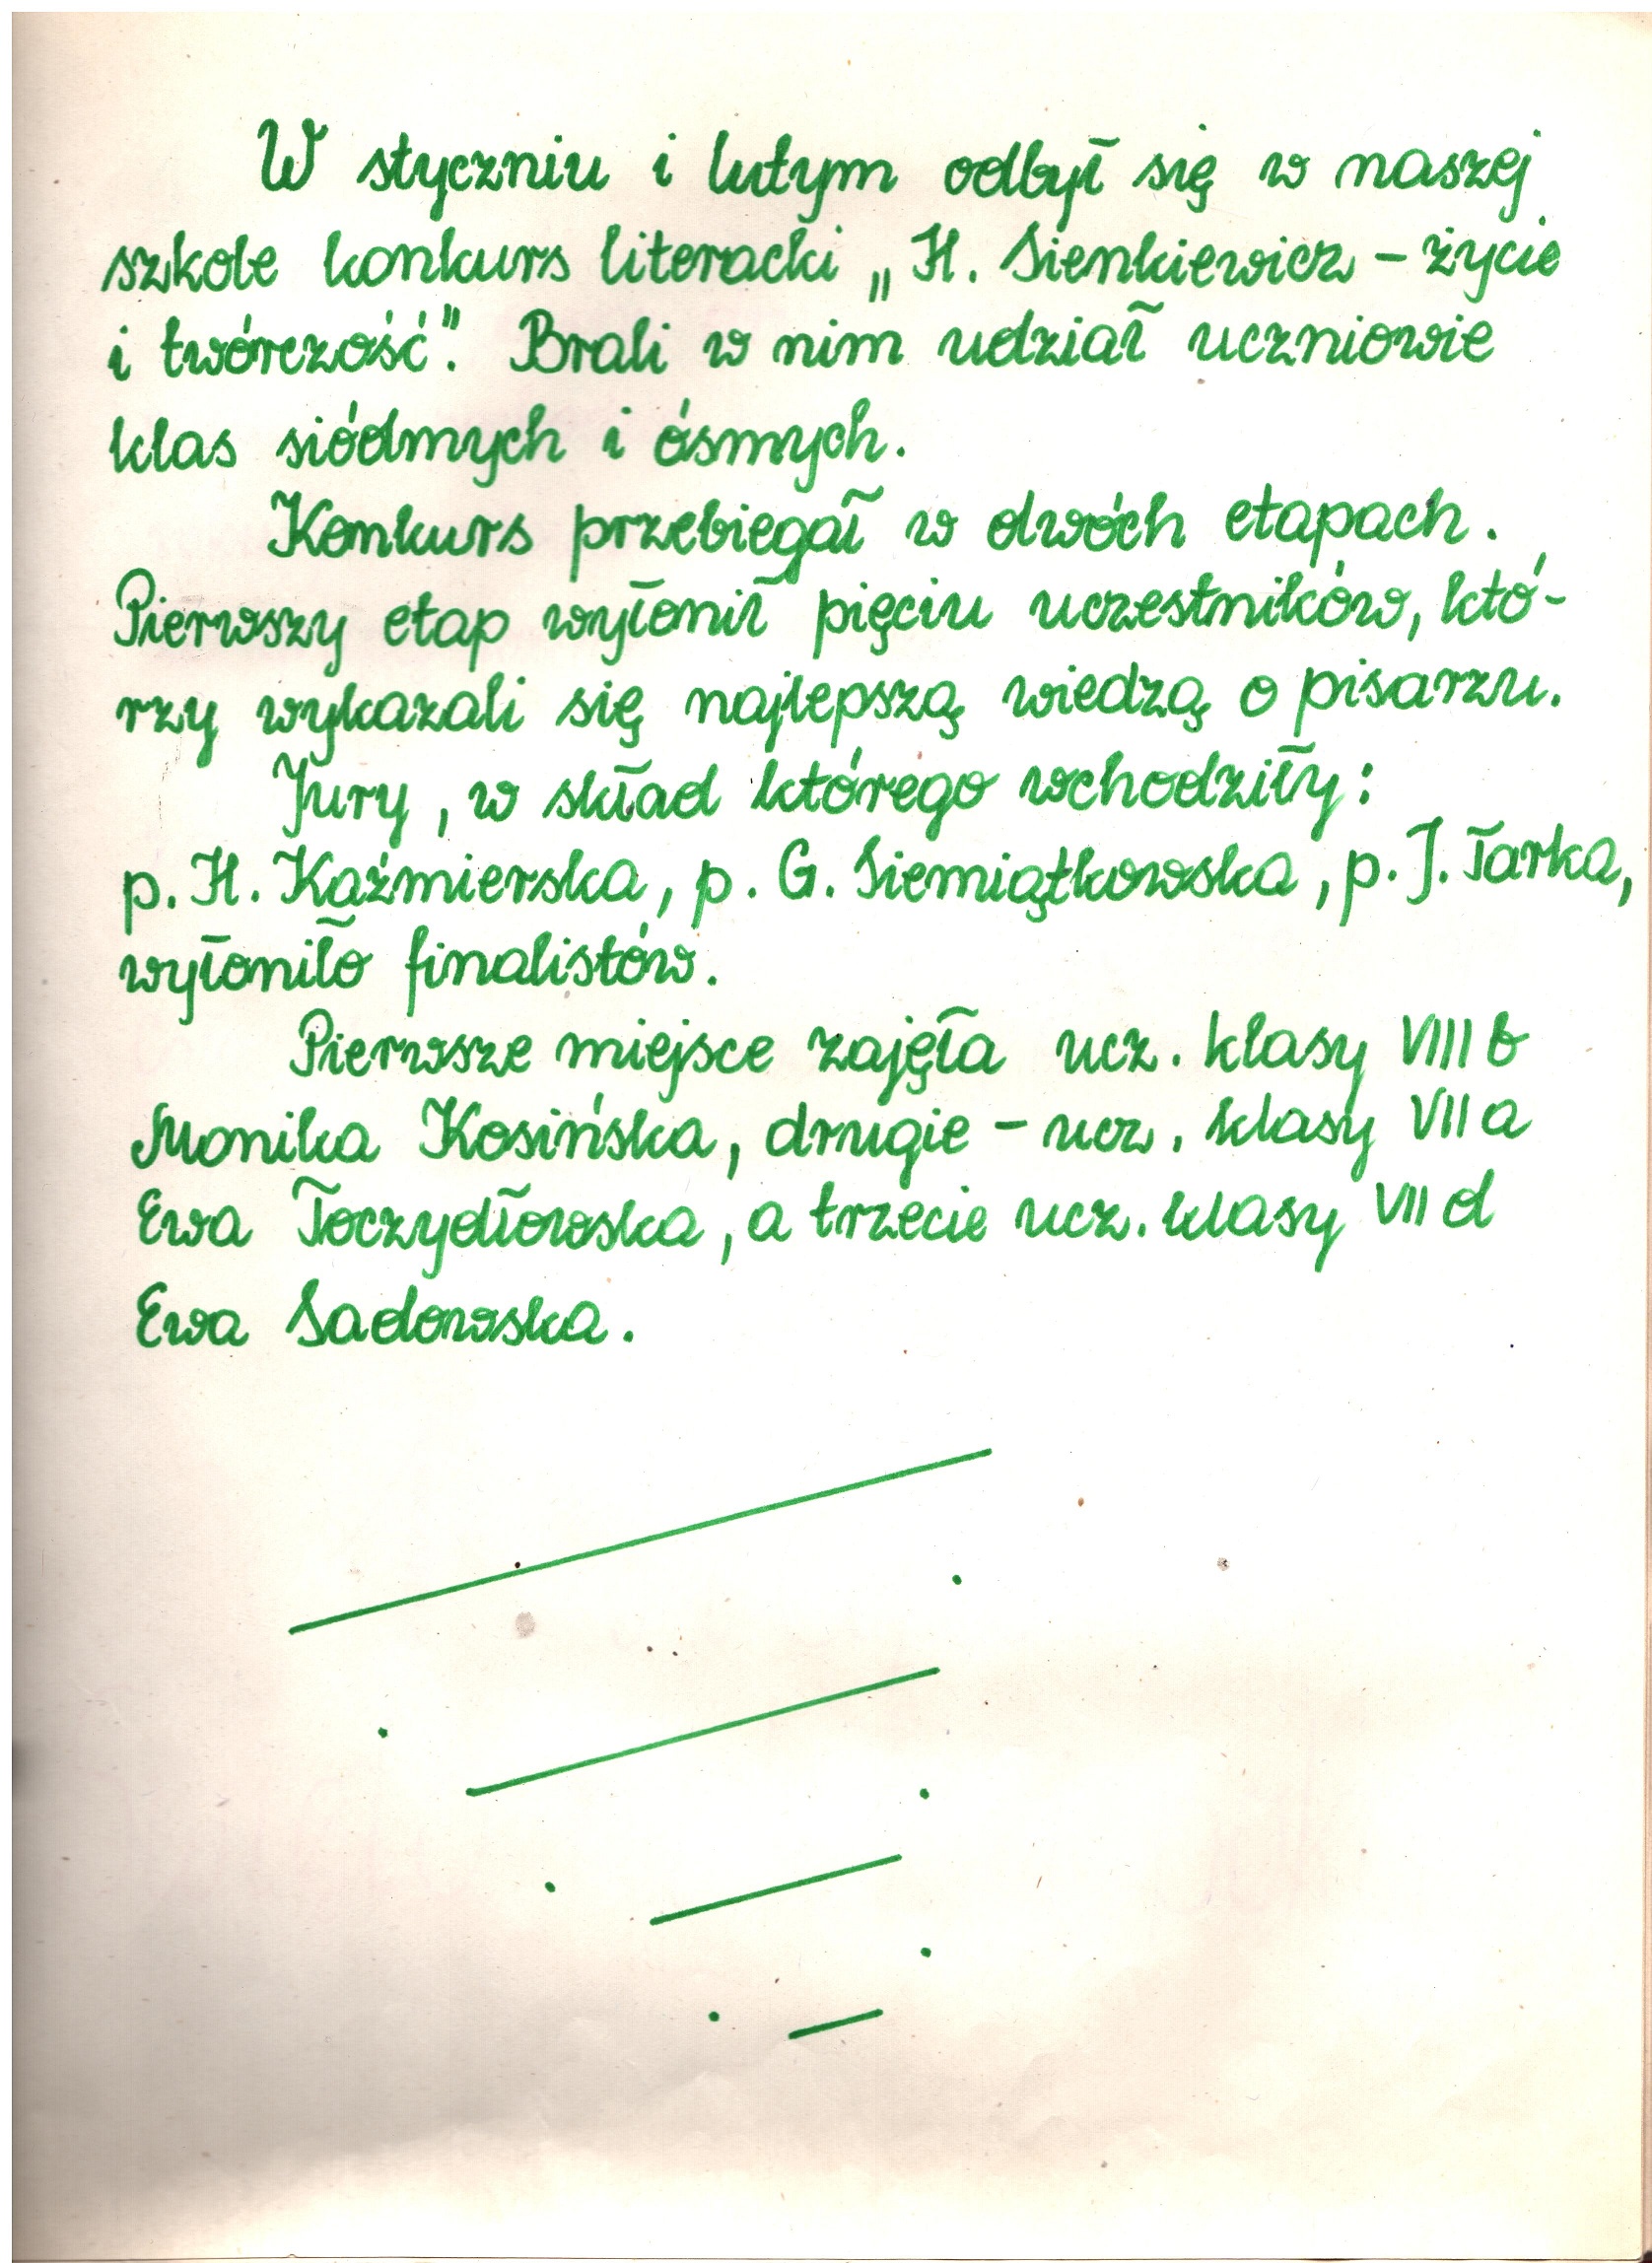 W styczniu i lutym odbył się w naszej
szkole konkurs literacki „H. Sienkiewicz – życie
i twórczość". Brali w nim udział uczniowie
klas siódmych i ósmych.
Konkurs przebiegał w dwóch etapach.
Pierwszy etap wyłonił pięciu uczestników, któ-
rzy wykazali się najlepszą wiedzą o pisarzu.
Jury, w skład którego wchodziły:
p. H. Kaźmierska, p. G. Siemiątkowska, p. J. Łarka,
wyłoniło finalistów.
Pierwsze miejsce zajęła ucz. klasy VIII b
Monika Kosińska, drugie – ucz. klasy VII a
Ewa Łoczydłowska, a trzecie ucz. klasy VII d
Ewa Sadowska.